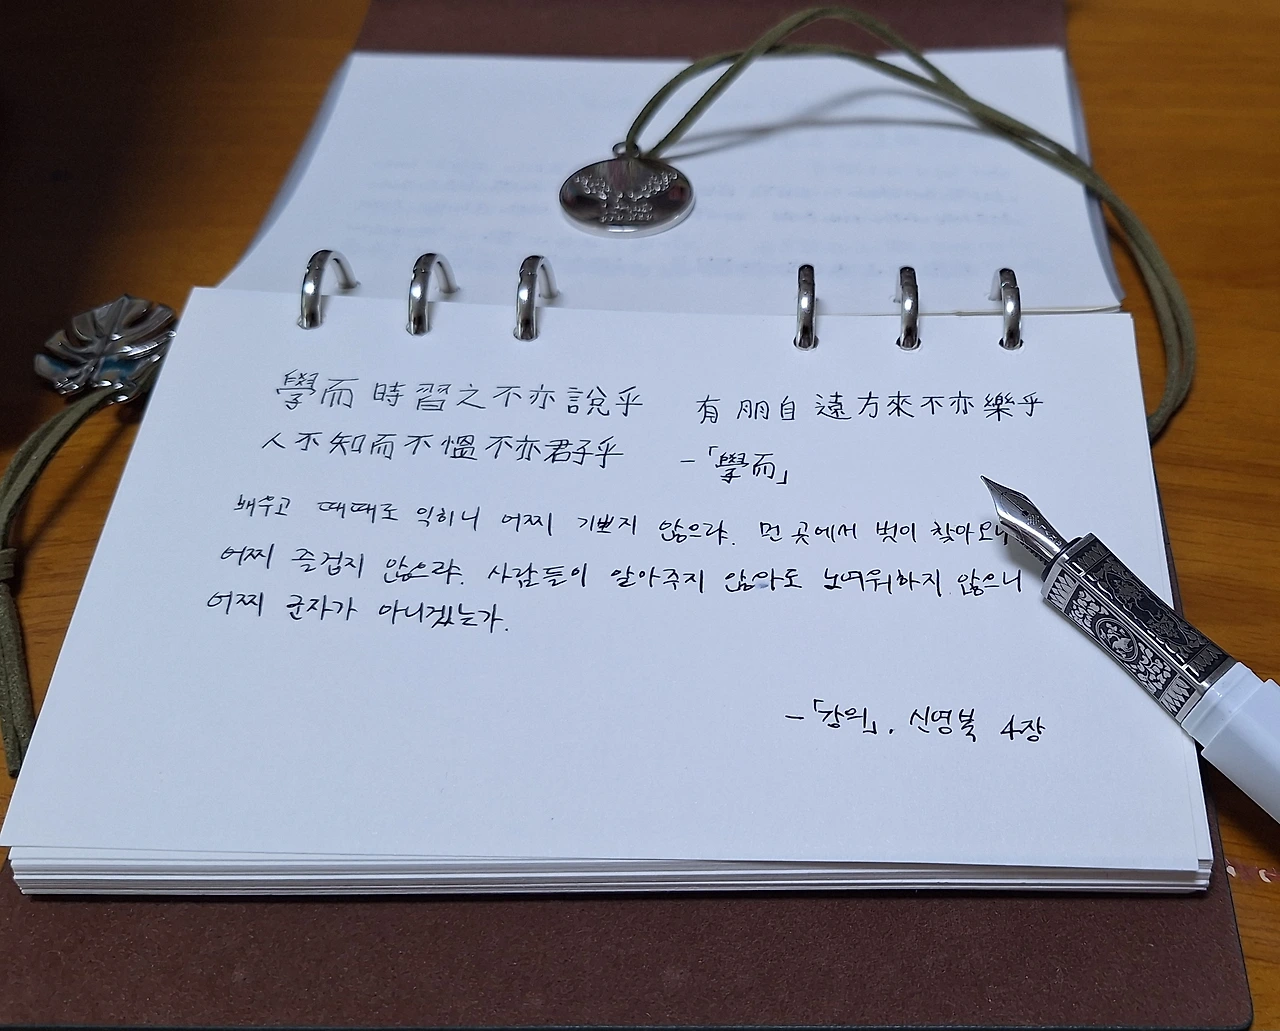 學而時習之不亦說乎 有朋自遠方來不亦樂乎
人不知而不慍不亦君子乎 -「學而」
배우고 때때로 익히니 어찌 기쁘지 않으랴. 먼 곳에서 벗이 찾아오니
어찌 즐겁지 않으랴. 사람들이 알아주지 않아도 노여워하지 않으니
어찌 군자가 아니겠는가.
-「강의」, 신영복 4장